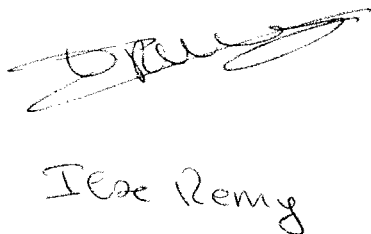 Ilse Remy